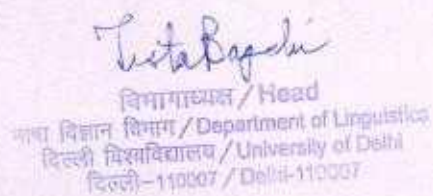 Tista Bagchi
विभागाध्यक्ष / Head
भाषा विज्ञान विभाग / Department of Linguistics
दिल्ली विश्वविद्यालय / University of Delhi
दिल्ली-110007 / Delhi-110007